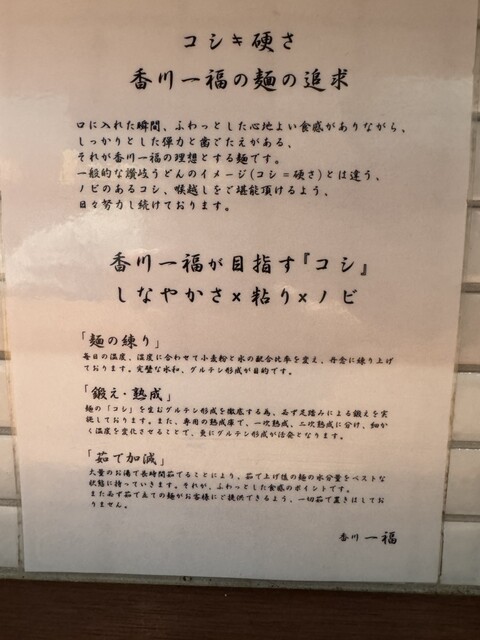 コシキ硬さ
香川一福の麺の追求
口に入れた瞬間、ふわっとした心地よい食感がありながら、
しっかりとした弾力と歯ごたえがある、
それが香川一福の理想とする麺です。
一般的な讃岐うどんのイメージ(コシ=硬さ)とは違う、
ノビのあるコシ、喉越しをご堪能頂けるよう、
日々努力し続けております。
香川一福が目指す『コシ』
しなやかさ×粘り×ノビ
「麺の練り」
毎日の温度、湿度に合わせて小麦粉と水の配合比率を変え、丹念に練り上げ
ております。完璧な水和、グルテン形成が目的です。
「鍛え・熟成」
麺の「コシ」を生むグルテン形成を徹底する為、必ず足踏みによる鍛えを実
施しております。また、専用の熟成庫で、一次熟成、二次熟成に分け、細か
く温度を変化させることで、更にグルテン形成が活発となります。
「茹で加減」
大量のお湯で長時間茹でることにより、茹で上げ後の麺の水分量をベストな
状態に持っていきます。それが、ふわっとした食感のポイントです。
また必ず茹で立ての麺がお客様にご提供できるよう、一切茹で置きはしてお
りません。
香川 一福